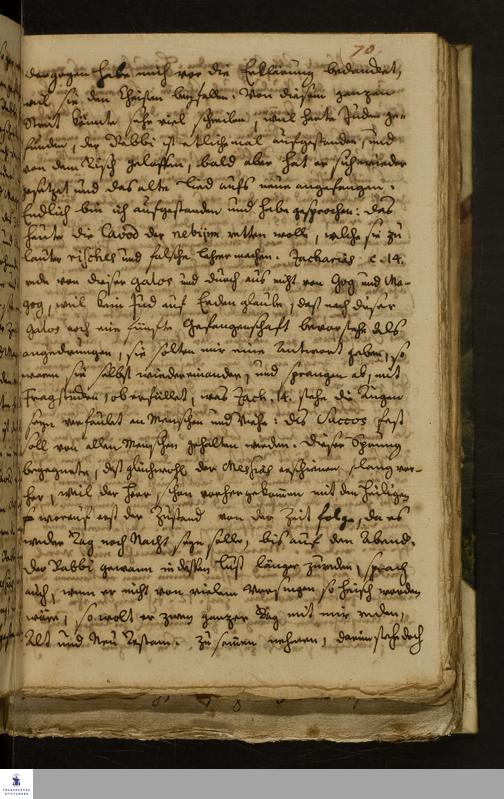 70.
dargegen habe mich vor die Erklärung bedancket,
weil sie den Christen beyfallen. Von diesem ganzen
Streit könnte sehr viel schreiben, weil heute Juden ge-
funden, der Rabbi ist etlichmal aufgestanden, und
von dem Tisch geloffen, bald aber hat er sich wieder
gesetzet und das alte Lied aufs neue angefangen.
Endlich bin ich aufgestanden und habe gesprochen: das
heute die Cavod der nebijim retten wolle, welche sie zu
lauter rischus und falsche Lehrer machen. Zacharias c. 14.
rede von dieser galos und durch aus nicht von Gog und Ma-
gog, weil kein Jud auf Erden glaube, daß nach dieser
galos noch eine fünfte Gefangenschaft bevorstehe Als
angedrungen, sie solten mir eine Antwort geben, so
waren sie selbst wiedereinander, und sprangen ab, mit
Fragstunden, ob erfüllet, was Zach. 14. stehe die Augen
seyn verfaulet an Menschen und Viehe: das Succos fest
soll von allen Menschen gehalten werden. Dieser Sprung
begegnete, daß gleichwohl der Messias erschienen, lang vor-
her, weil der Herr schon vorhergekommen mit den heiligen
worauf erst der Zustand von der Zeit folge, da es
weder Tag noch Nacht seyn solle, bis auf den Abend.
Der Rabbi gewann indessen Lust länger zureden, sprach
auch, wenn er nicht von vielem Vorsingen so heisch worden
wäre, so wolt er zwey ganzer Tag mit mir reden,
Alt und Neu Testam. zusamen nehmen, darum stehe doch
FRANCKESCHE
STIFTUNGEN